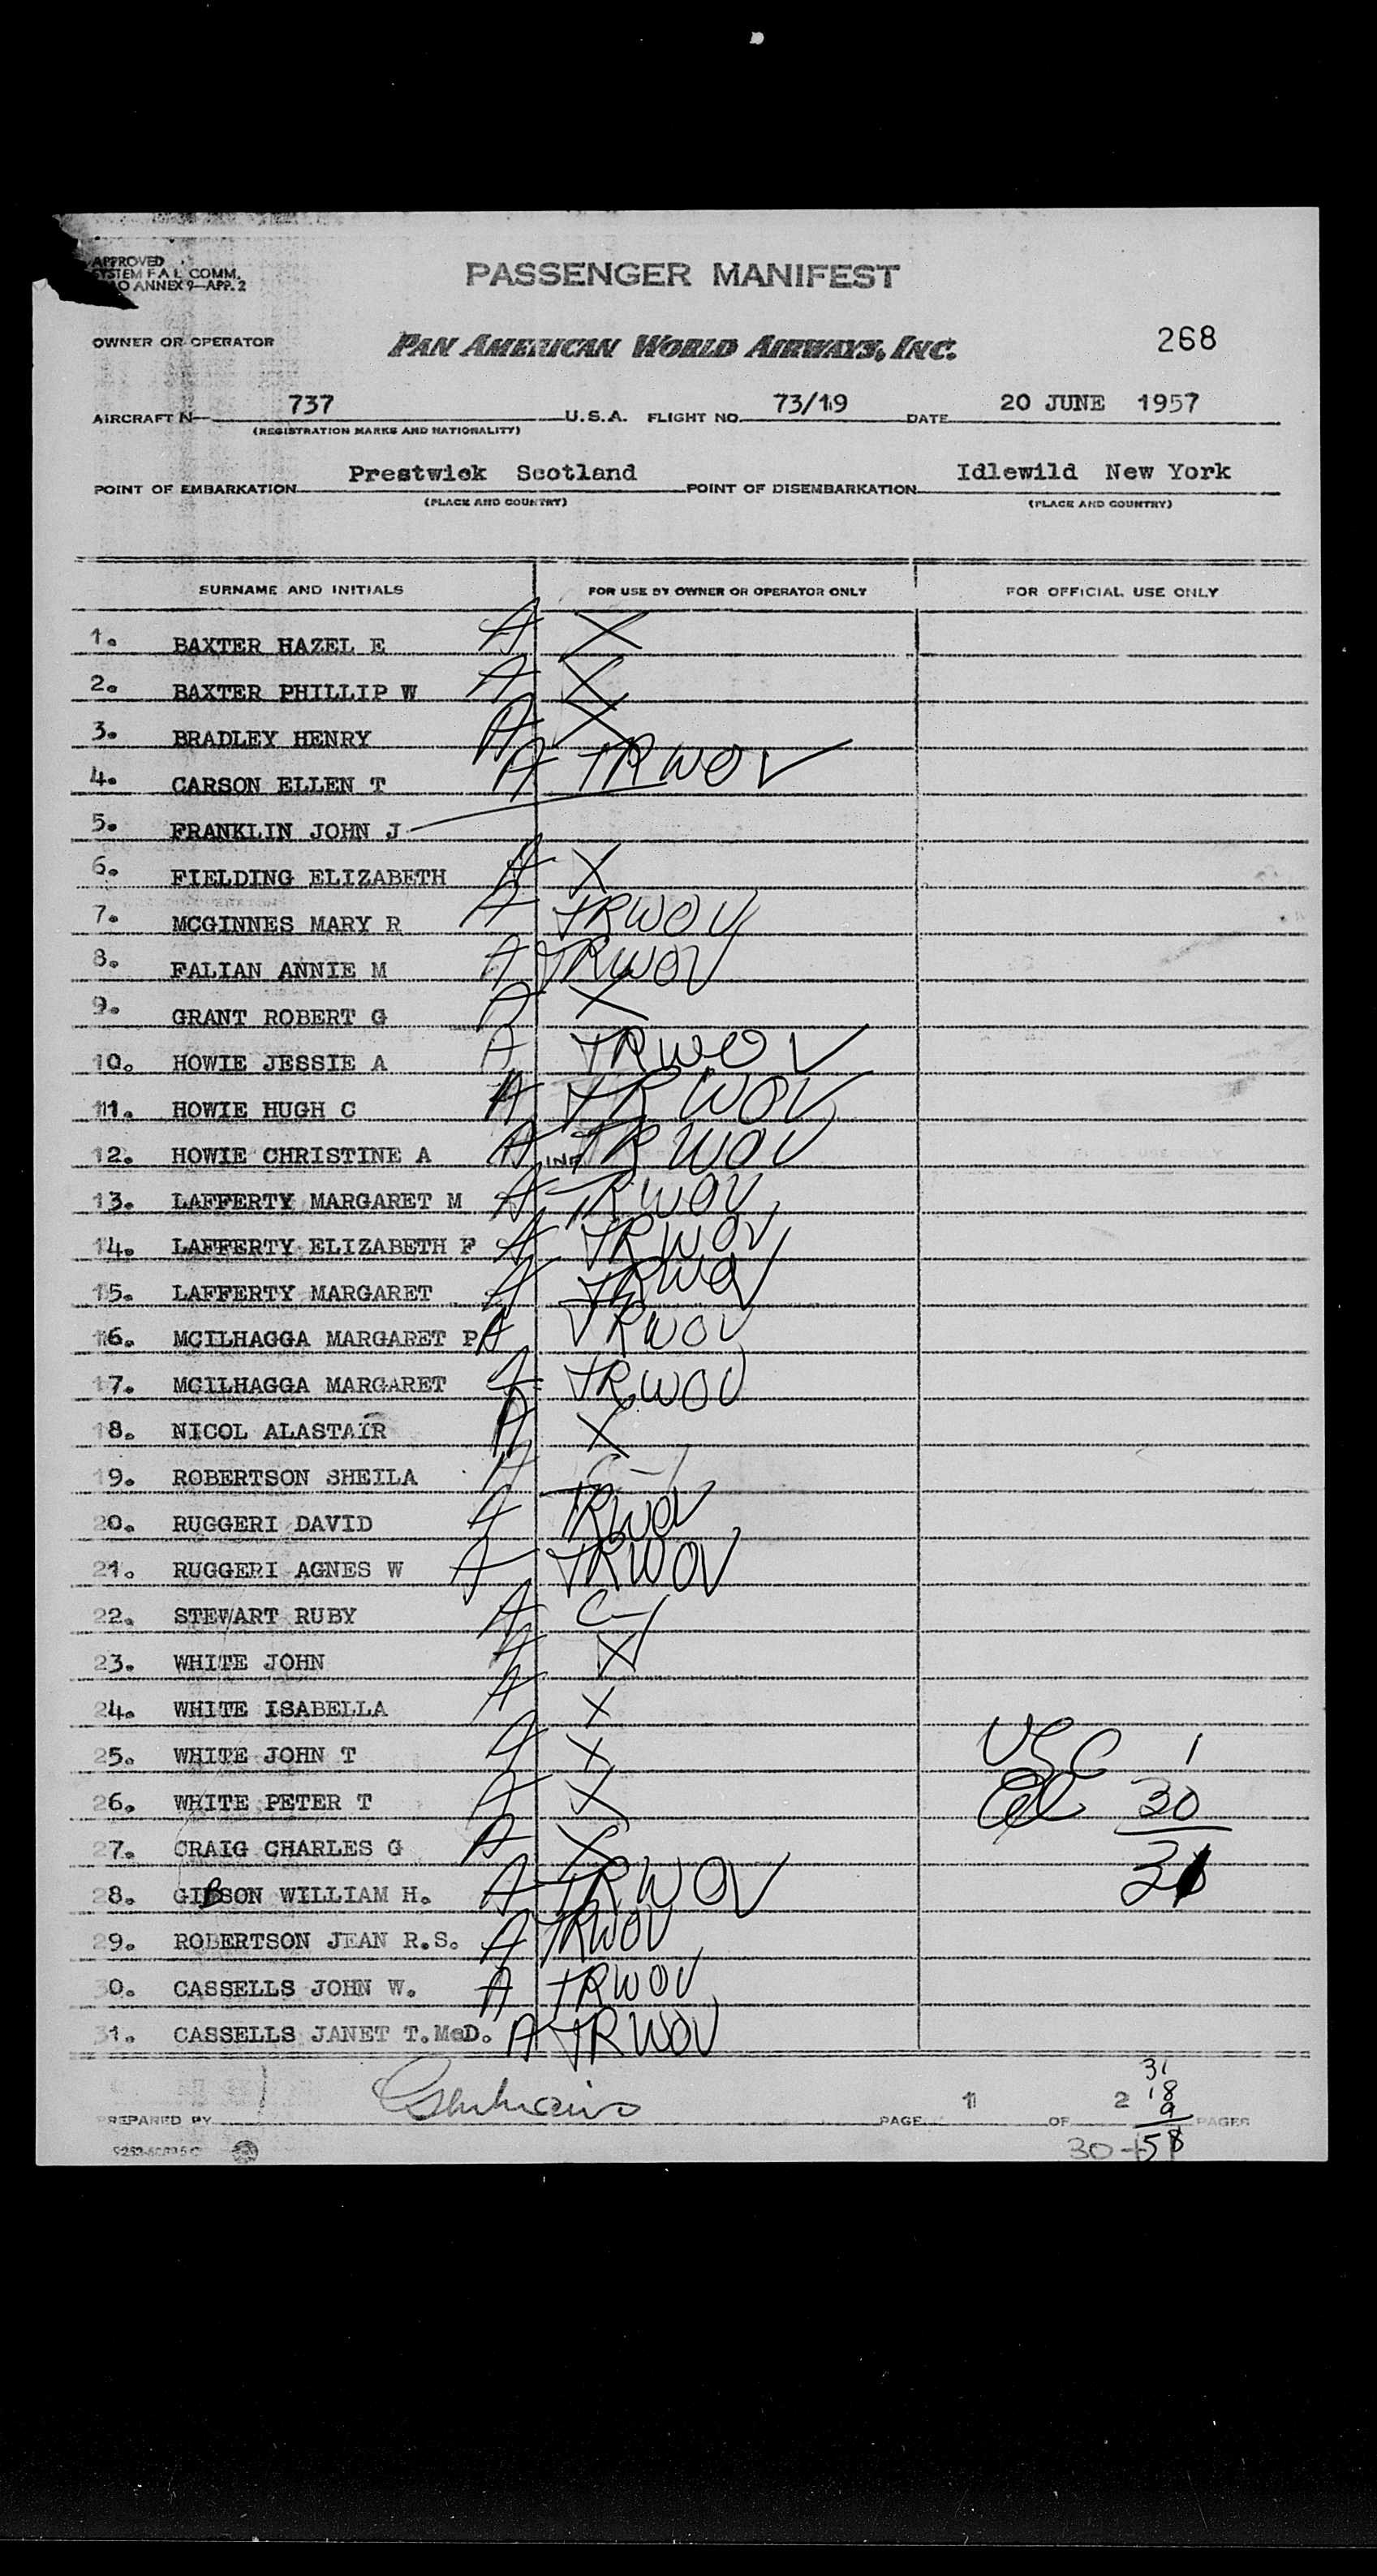 APPROVED
SYSTEM F A L COMM.
ANNEX 9—APP. 2
PASSENGER MANIFEST
OWNER OR OPERATOR PAN AMERICAN WORLD AIRWAYS, INC. 268
AIRCRAFT N— 737 U.S.A. FLIGHT NO. 73/19 DATE 20 JUNE 1957
(REGISTRATION MARKS AND NATIONALITY)
POINT OF EMBARKATION Prestwick Scotland POINT OF DISEMBARKATION Idlewild New York
(PLACE AND COUNTRY) (PLACE AND COUNTRY)
SURNAME AND INITIALS FOR USE BY OWNER OR OPERATOR ONLY FOR OFFICIAL USE ONLY
1. BAXTER HAZEL E A X
2. BAXTER PHILLIP W A X
3. BRADLEY HENRY A X
4. CARSON ELLEN T A TRWOV
5. FRANKLIN JOHN J
6. FIELDING ELIZABETH A X
7. MCGINNES MARY R A TRWOV
8. FALIAN ANNIE M A TRWOV
9. GRANT ROBERT G A X
10. HOWIE JESSIE A A TRWOV
11. HOWIE HUGH C A TRWOV
12. HOWIE CHRISTINE A A INF TRWOV
13. LAFFERTY MARGARET M A TRWOV
14. LAFFERTY ELIZABETH F A TRWOV
15. LAFFERTY MARGARET A TRWOV
16. MCILHAGGA MARGARET P A TRWOV
17. MCILHAGGA MARGARET A TRWOV
18. NICOL ALASTAIR A X
19. ROBERTSON SHEILA A C-1
20. RUGGERI DAVID A TRWOV
21. RUGGERI AGNES W A TRWOV
22. STEWART RUBY A C-1
23. WHITE JOHN A X
24. WHITE ISABELLA A X
25. WHITE JOHN T A X USC 1
26. WHITE PETER T A X 30
27. CRAIG CHARLES G A X
28. GIBSON WILLIAM H. A TRWOV 31
29. ROBERTSON JEAN R.S. A TRWOV
30. CASSELLS JOHN W. A TRWOV
31. CASSELLS JANET T.McD. A TRWOV
31
18
9
PREPARED BY PAGE 1 OF 2 PAGES
30+1 58